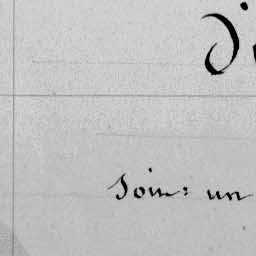 d'
Soin= un